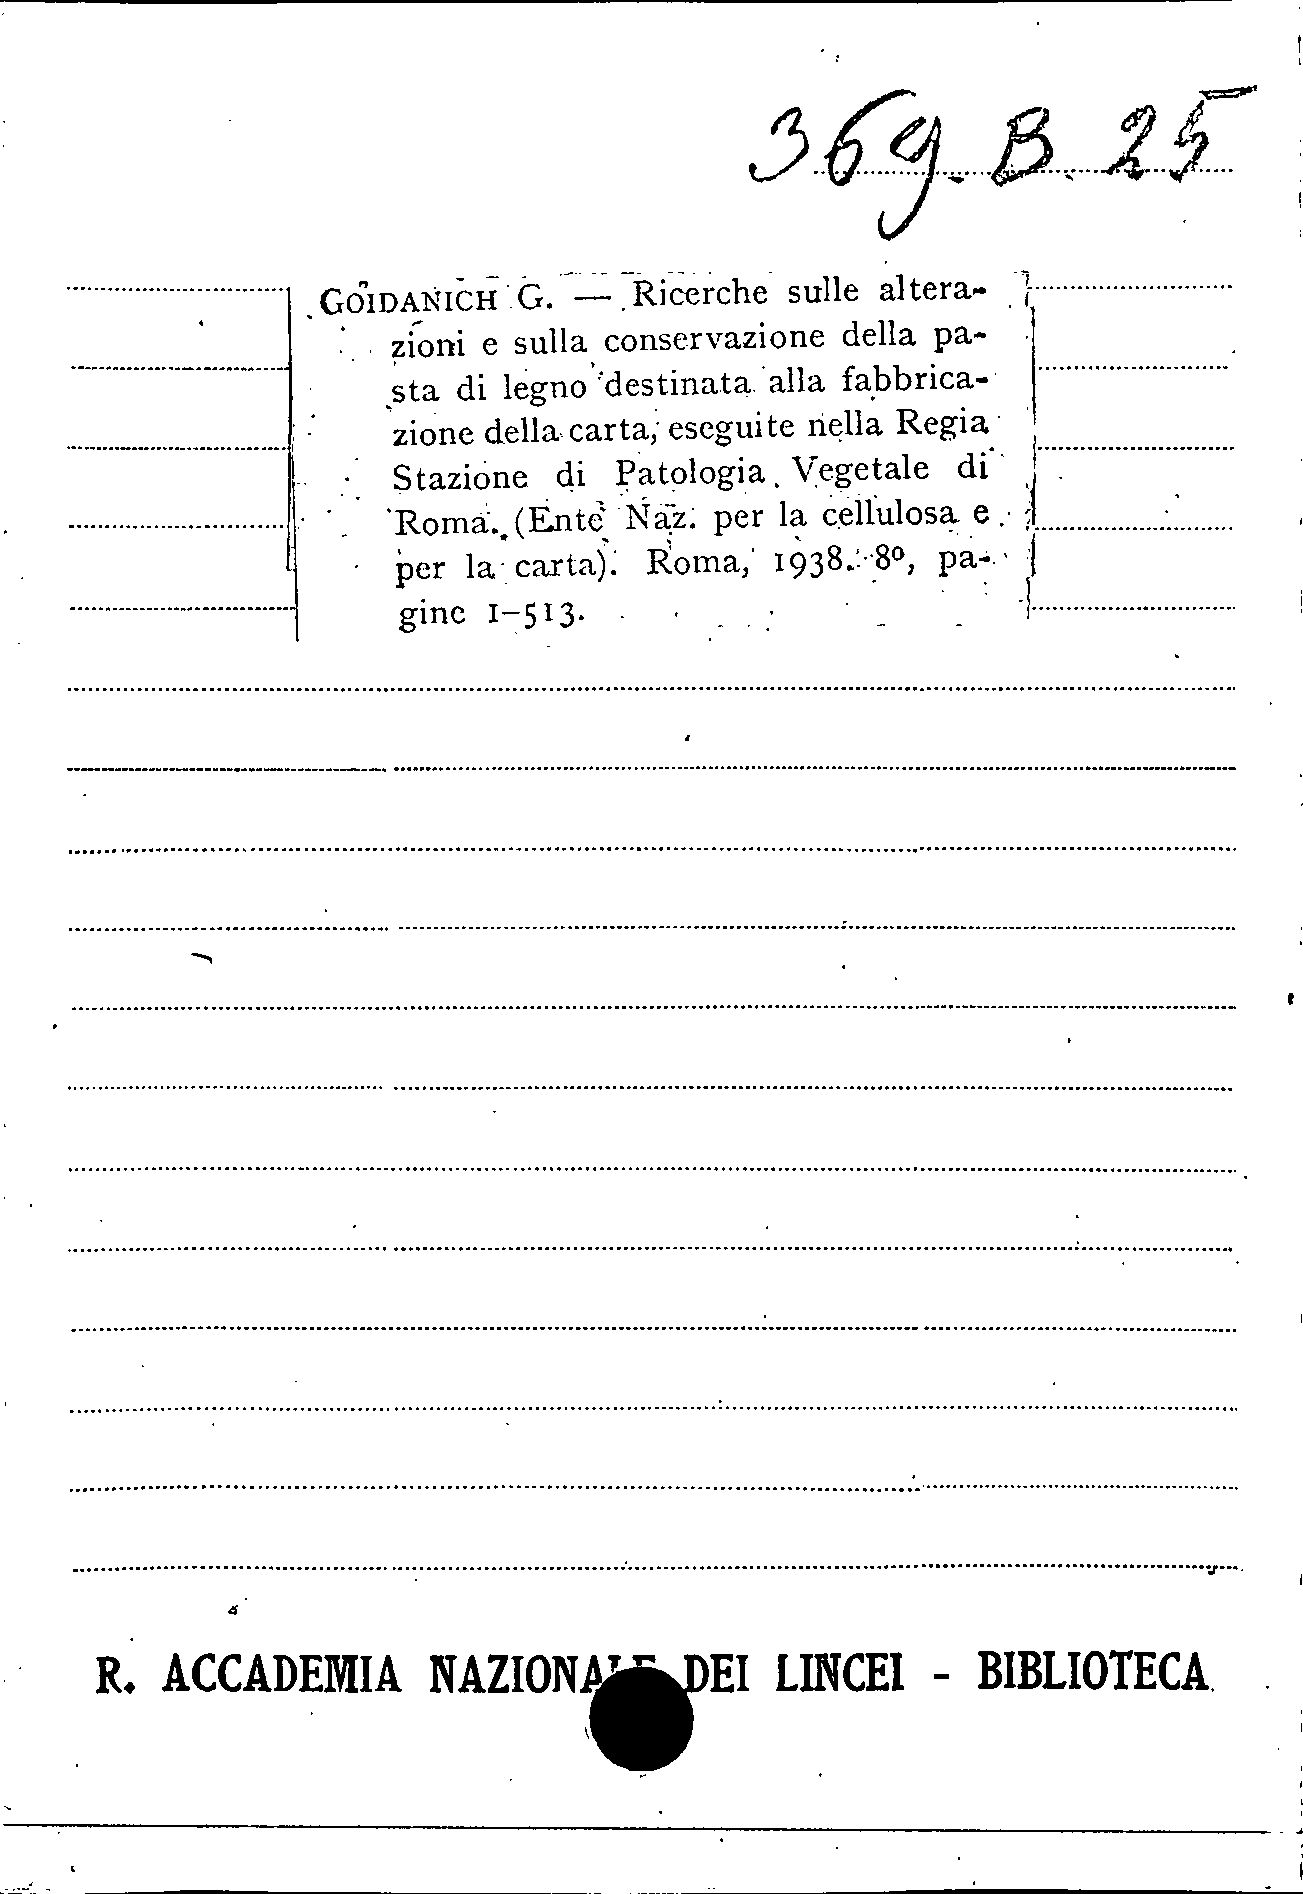 369. B. 25
GOIDANICH G. — Ricerche sulle altera-
zioni e sulla conservazione della pa-
sta di legno destinata alla fabbrica-
zione della carta, eseguite nella Regia
Stazione di Patologia Vegetale di
Roma. (Ente Naz. per la cellulosa e
per la carta). Roma, 1938. 8º, pa-
gine 1-513.
R. ACCADEMIA NAZIONALE DEI LINCEI - BIBLIOTECA